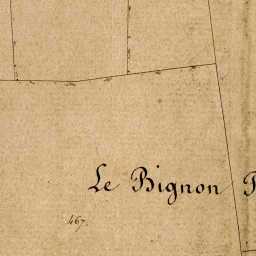 Le Bignon
467